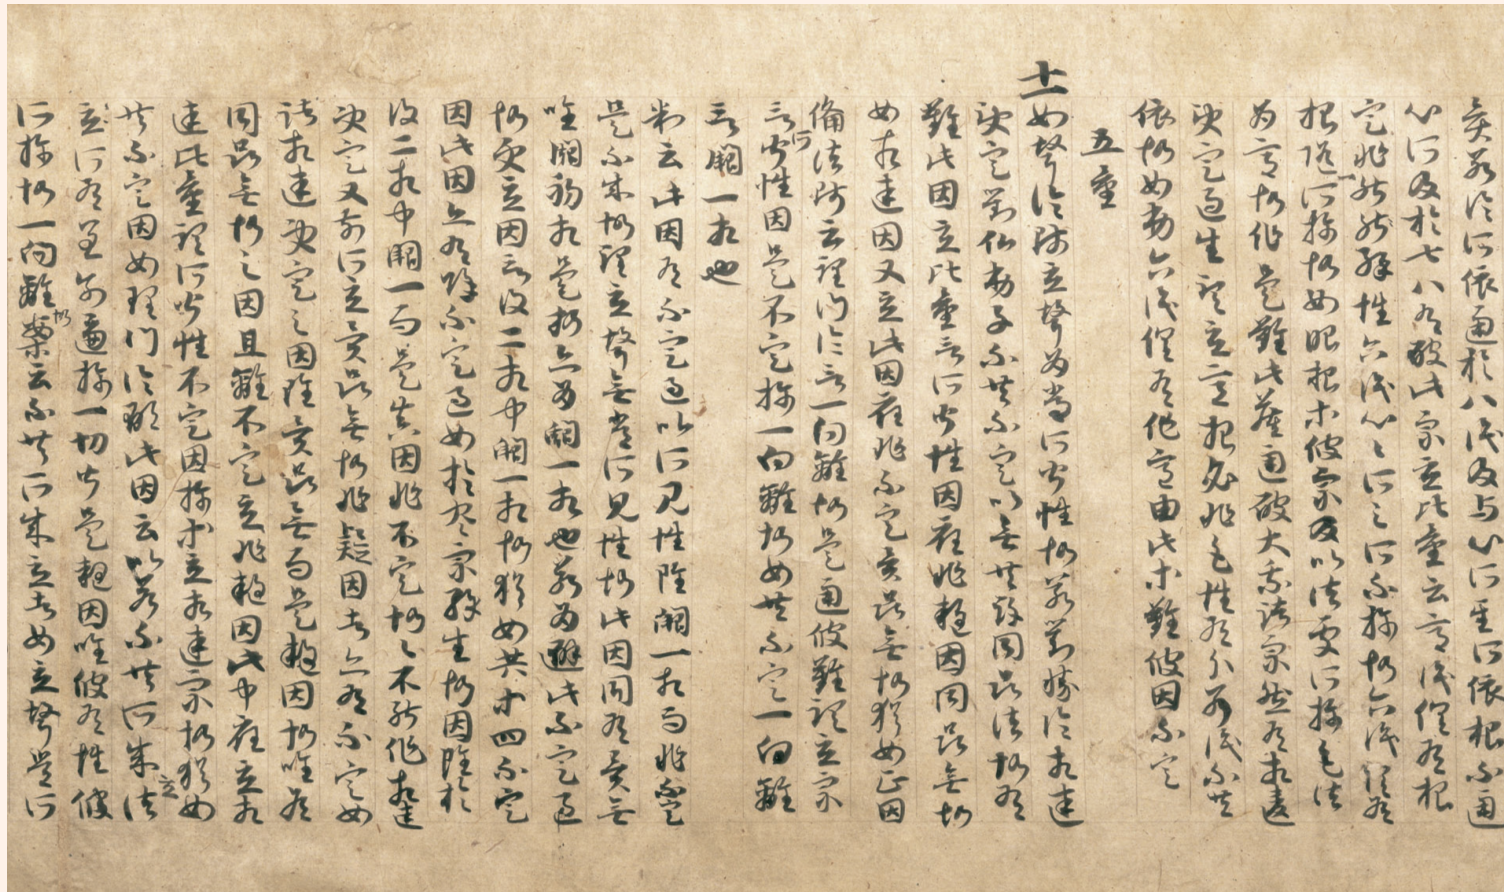 矣若論所依通於八識及与心所至所依根不通
心所及於七八有破此宗立比量云意識俱有根
定非能緣性六識心心所之所不攝故六識俱有
根隨一所攝故如眼根等彼宗反以法處所攝色法
为意故作是難此難通破大乘諸宗然有相違
決定過生謂立意根必非色性有分別識不共
依故如第六識俱有作意由此等難彼因不定
五重
十一如聲論師立聲为常所聞性故若對勝論相違
決定對仏弟子不共不定以無共許同品法故有
難此因立比量言所聞性因應非疑因同品無故
如相違因又立此因應非不定異品無故猶如正因
備法師云理門論言一向離故是通彼難謂立宗
言所聞性因是不定攝一向離故如共不定一向離
言闕一相也
判云此因有不定過以所見性雖闕一相而非不定
是不成故謂立聲無常所見性故此因同有異無
唯闕初相是故亦为闕一相也若为避此不定過
故更立因言後二相中闕一相故猶如共等四不定
因此因亦有餘不定過如於空宗緣生故因雖於
後二相中闕一而是真因非不定故故不能作相違
決定又前所立異品無故非疑因者亦有不定如
諸相違決定之因雖異品無而是疑因故唯有
同品無故之因且離不定立非疑因此中應立相
違比量謂所聞性不定因攝等立相違宗故猶如
共不定因如理門論顕此因云以若不共所成立法
立所有差別遍攝一切皆是疑因唯彼有性彼
所攝故一向離故案云不共所成立者如立聲是所